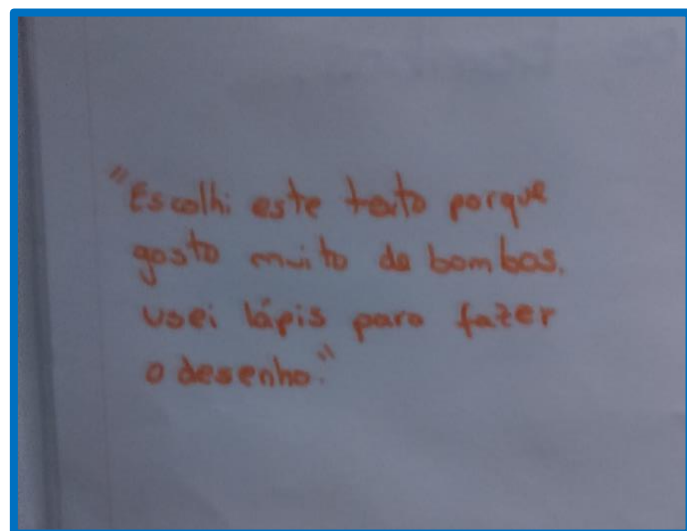 "Escolhi este texto porque
gosto muito de bombas.
usei lápis para fazer
o desenho."